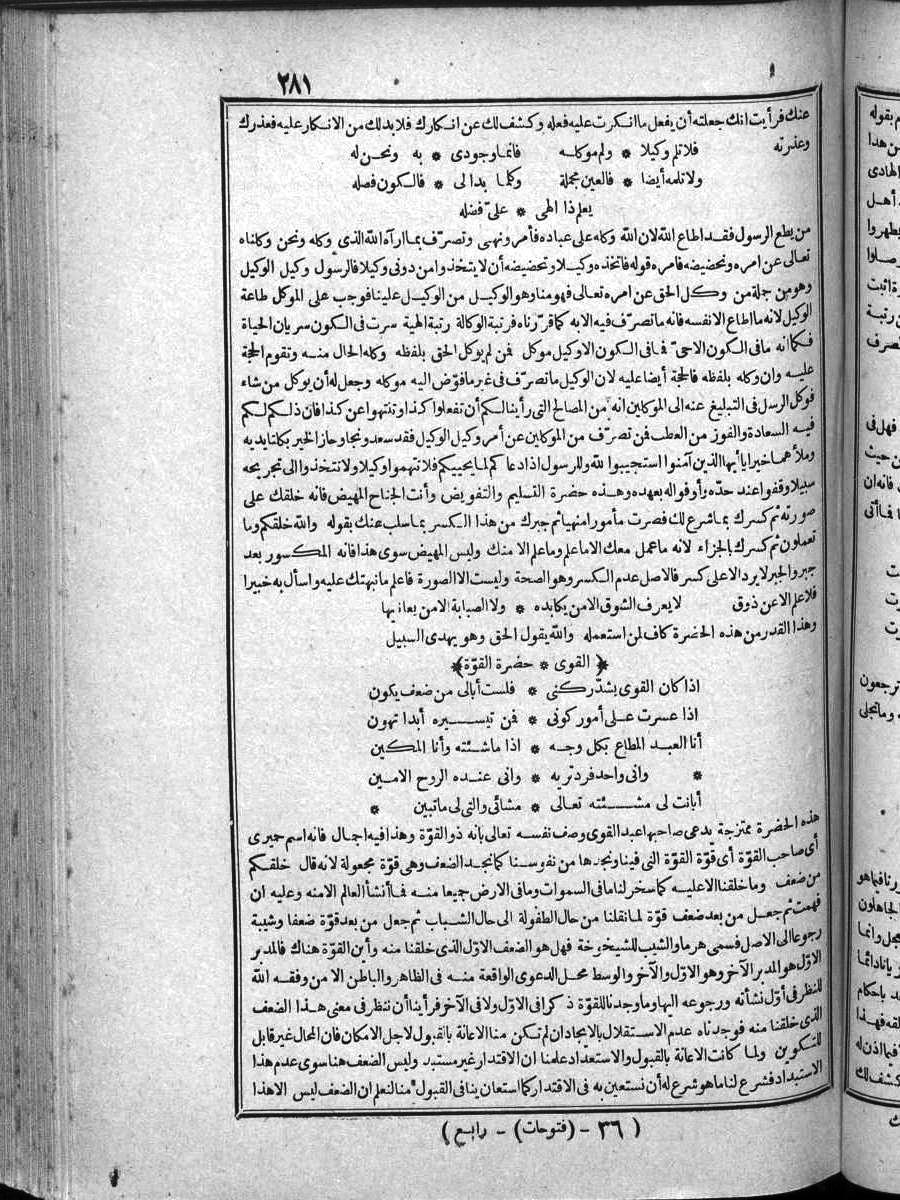 ٢٨١
عنك فرأيت انك جعلته أن يفعل ما انكرت عليه فعله وكشف لك عن انكارك فلا بد لك من الانكار عليه فعذرك
وعذرته
فلا تلم وكيلا * ولم موكله فانما وجودى * به ونحن له
ولا تلمه أيضا * فالعين مجملة وكلما بدا لى * فالكون فصله
يعلم ذا الهى * علىّ فضله
من يطع الرسول فقد اطاع الله لان الله وكله على عباده فأمر ونهى وتصرّف بما اراه الله الذى وكله ونحن وكلناه
تعالى عن امره وتحضيضه فامره قوله فاتخذه وكيلا وتحضيضه أن لا يتخذوا من دونى وكيلا فالرسول وكيل الوكيل
وهو من جلة من وكل الحق عن امره تعالى فهو منا وهو الوكيل من الوكيل علينا فوجب على الموكل طاعة
الوكيل لانه ما اطاع الا نفسه فانه ما تصرّف فيه الا به كما قرّرناه فرتبة الوكالة رتبة الهية سرت فى الكون سريان الحياة
فكما انه ما فى الكون الا حىّ فما فى الكون الا وكيل موكل فمن لم يوكل الحق بلفظه وكله الحال منه وتقوم الحجة
عليه وان وكله بلفظه فالحجة أيضا عليه لان الوكيل ما تصرّف فى غير ما فوّض اليه موكله وجعل له أن يوكل من شاء
فوكل الرسل فى التبليغ عنه الى الموكلين انه من المصالح التى رأينا لكم أن تفعلوا كذا وتنتهوا عن كذا فان ذلكم لكم
فيه السعادة والفوز من العطب فمن تصرّف من الموكلين عن أمر وكيل الوكيل فقد سعد ونجا وحاز الخير بكلتا يديه
وملأهما خيرا يا أيها الذين آمنوا استجيبوا لله وللرسول اذا دعاكم لما يحييكم فلا تتهموا وكيلا ولا تتخذوا الى تجريحه
سبيلا وقفوا عند حدّه وأوفوا له بعهده وهذه حضرة التسليم والتفويض وأنت الجناح المهيض فانه خلقك على
صورته ثم كسرك بما شرع لك فصرت مأمورا منهيا ثم جبرك من هذا الكسر بما سلب عنك بقوله والله خلقكم وما
تعملون ثم كسرك بالجزاء لانه ما عمل معك الا ما علم وما علم الا منك وليس المهيض سوى هذا فانه المكسور بعد
جبر والجبر لا يرد الا على كسر فالاصل عدم الكسر وهو الصحة وليست الا الصورة فاعلم ما نبهتك عليه واسأل به خبيرا
فلا علم الا عن ذوق لا يعرف الشوق الا من يكابده * ولا الصبابة الا من يعانيها
وهذا القدر من هذه الحضرة كاف لمن استعمله والله يقول الحق وهو يهدى السبيل
﴿ القوى * حضرة القوّة ﴾
اذا كان القوى يشدّ ركنى * فلست أبالى من ضعف يكون
اذا عسرت على أمور كونى * فمن تيسيره أبدا تهون
أنا العبد المطاع بكل وجه * اذا ما شئته وأنا المكين
* وانى واحد فرد تريه * وانى عنده الروح الامين
أبانت لى مشئته تعالى * مشائى والتى لى ما تبين *
هذه الحضرة ممتزجة يدعى صاحبها عبد القوى وصف نفسه تعالى بانه ذو القوّة وهذا فيه اجمال فانه اسم حميرى
أى صاحب القوّة أى قوّة القوّة التى فينا ونجدها من نفوسنا كما نجد الضعف وهى قوّة مجعولة لانه قال خلقكم
من ضعف وما خلقنا الا عليه كما سخر لنا ما فى السموات وما فى الارض جميعا منه فما أنشأ العالم الا منه وعليه ان
فهمت ثم جعل من بعد ضعف قوّة لما نقلنا من حال الطفولة الى حال الشباب ثم جعل من بعد قوّة ضعفا وشيبة
رجوعا الى الاصل فسمى هرما والشيب للشيخوخة فهل هو الضعف الاوّل الذى خلقنا منه وأين القوّة هناك فالمدبر
الاوّل هو المدبر الآخر وهو الاوّل والآخر والوسط محل الدعوى الواقعة منه فى الظاهر والباطن الا من وفقه الله
للنظر فى أوّل نشأته ورجوعه الها وما وجدنا للقوة ذكرا فى الاوّل ولا فى الآخر فرأينا أن ننظر فى معنى هذا الضعف
الذى خلقنا منه فوجدناه عدم الاستقلال بالايجاد ان لم تكن منا الاعانة بالقبول لاجل الامكان فان المحال غير قابل
للتكوين ولما كانت الاعانة بالقبول والاستعداد علمنا ان الاقتدار غير مستبد وليس الضعف هنا سوى عدم هذا
الاستبداد فشرع لنا ما هو شرع له أن نستعين به فى الاقتدار كما استعان بنا فى القبول منا لنعلم ان الضعف ليس الا هذا
( ٣٦ - (فتوحات) - رابع )